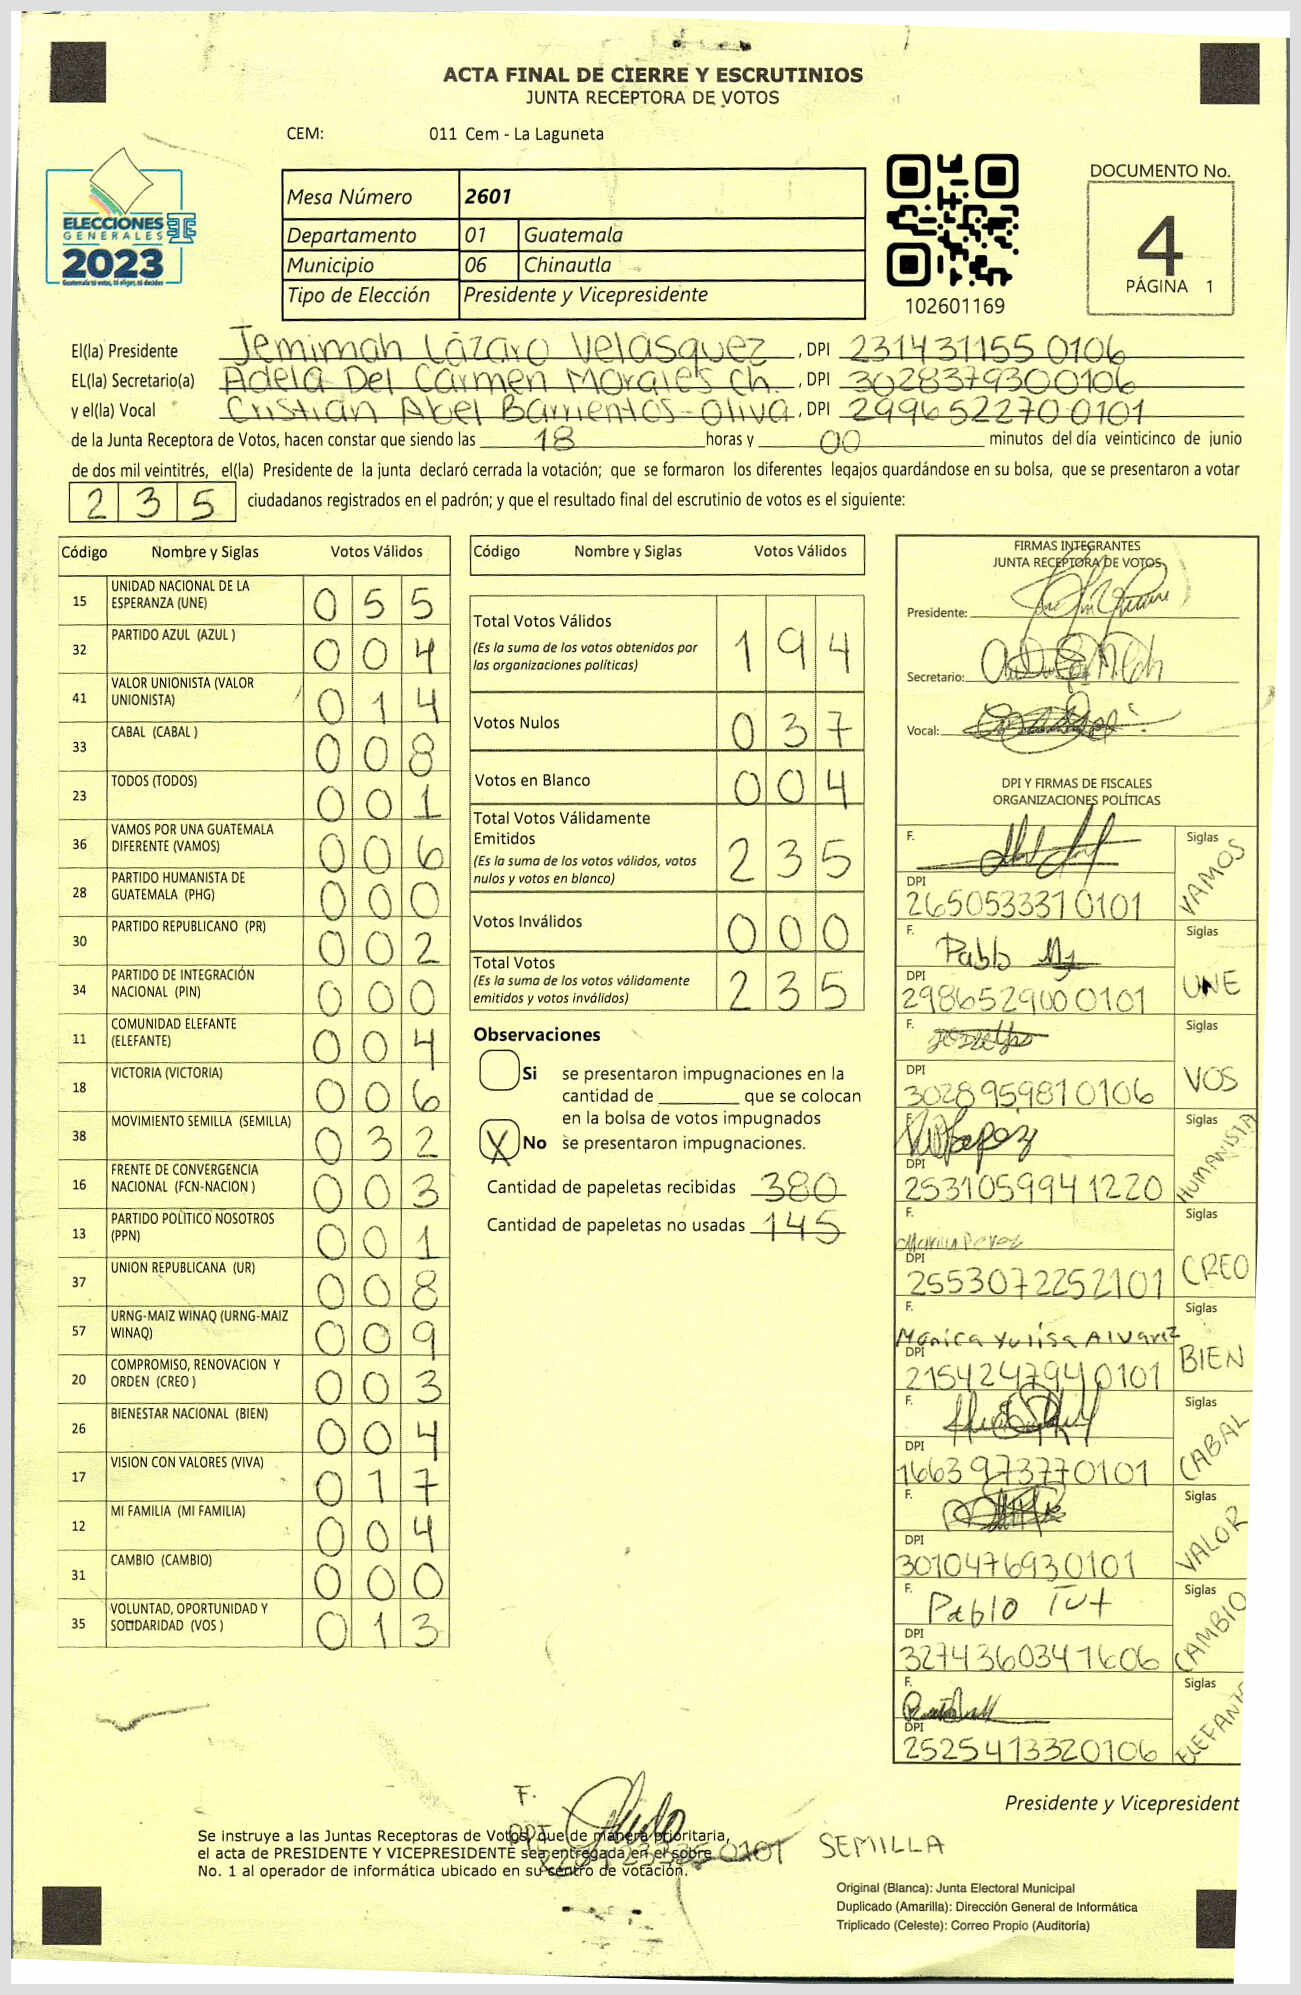 ACTA FINAL DE CIERRE Y ESCRUTINIOS
JUNTA RECEPTORA DE VOTOS
CEM: 011 Cem - La Laguneta
ELECCIONES
GENERALES
2023
Mesa Número 2601
Departamento 01 Guatemala
Municipio 06 Chinautla
Tipo de Elección Presidente y Vicepresidente
102601169
DOCUMENTO No.
4
PÁGINA 1
El(la) Presidente Jemimah Lázaro Velásquez, DPI 231431155 0106
EL(la) Secretario(a) Adela Del Carmen Morales Ch., DPI 3028379300106
y el(la) Vocal Cristian Abel Barrientos Oliva, DPI 299652270 0101
de la Junta Receptora de Votos, hacen constar que siendo las 18 horas y 00 minutos del día veinticinco de junio
de dos mil veintitrés, el(la) Presidente de la junta declaró cerrada la votación; que se formaron los diferentes legajos guardándose en su bolsa, que se presentaron a votar
235 ciudadanos registrados en el padrón; y que el resultado final del escrutinio de votos es el siguiente:
Código Nombre y Siglas Votos Válidos
15 UNIDAD NACIONAL DE LA ESPERANZA (UNE) 055
32 PARTIDO AZUL (AZUL ) 004
41 VALOR UNIONISTA (VALOR UNIONISTA) 014
33 CABAL (CABAL ) 008
23 TODOS (TODOS) 001
36 VAMOS POR UNA GUATEMALA DIFERENTE (VAMOS) 006
28 PARTIDO HUMANISTA DE GUATEMALA (PHG) 000
30 PARTIDO REPUBLICANO (PR) 002
34 PARTIDO DE INTEGRACIÓN NACIONAL (PIN) 000
11 COMUNIDAD ELEFANTE (ELEFANTE) 004
18 VICTORIA (VICTORIA) 006
38 MOVIMIENTO SEMILLA (SEMILLA) 032
16 FRENTE DE CONVERGENCIA NACIONAL (FCN-NACION ) 003
13 PARTIDO POLÍTICO NOSOTROS (PPN) 001
37 UNION REPUBLICANA (UR) 008
57 URNG-MAIZ WINAQ (URNG-MAIZ WINAQ) 009
20 COMPROMISO, RENOVACION Y ORDEN (CREO ) 003
26 BIENESTAR NACIONAL (BIEN) 004
17 VISION CON VALORES (VIVA) 017
12 MI FAMILIA (MI FAMILIA) 004
31 CAMBIO (CAMBIO) 000
35 VOLUNTAD, OPORTUNIDAD Y SOLIDARIDAD (VOS ) 013
Código Nombre y Siglas Votos Válidos
Total Votos Válidos 194
(Es la suma de los votos obtenidos por
las organizaciones políticas)
Votos Nulos 037
Votos en Blanco 004
Total Votos Válidamente
Emitidos 235
(Es la suma de los votos válidos, votos
nulos y votos en blanco)
Votos Inválidos 000
Total Votos 235
(Es la suma de los votos válidamente
emitidos y votos inválidos)
Observaciones
Si se presentaron impugnaciones en la
cantidad de ________ que se colocan
en la bolsa de votos impugnados
X No se presentaron impugnaciones.
Cantidad de papeletas recibidas 380
Cantidad de papeletas no usadas 145
FIRMAS INTEGRANTES
JUNTA RECEPTORA DE VOTOS
Presidente:
Secretario:
Vocal:
DPI Y FIRMAS DE FISCALES
ORGANIZACIONES POLÍTICAS
F. Siglas VAMOS
DPI
2650533310101
F. Pablo Siglas UNE
DPI
2986529000101
F. Siglas VOS
DPI
3028959810106
F. Siglas HUMANISTA
DPI
2531059941220
F. Siglas CREO
DPI
2553072252101
F. Siglas BIEN
Mónica Yulisa Alvarez
DPI
2154247940101
F. Siglas CABAL
DPI
1663973770101
F. Siglas VALOR
DPI
3010476930101
F. Pablo Tut Siglas CAMBIO
DPI
3274360341606
F. Siglas ELEFANTE
DPI
2525413320106
Presidente y Vicepresident
F.
DPI
SEMILLA
Se instruye a las Juntas Receptoras de Votos, que de manera prioritaria,
el acta de PRESIDENTE Y VICEPRESIDENTE sea entregada en el sobre
No. 1 al operador de informática ubicado en su centro de votación.
Original (Blanca): Junta Electoral Municipal
Duplicado (Amarilla): Dirección General de Informática
Triplicado (Celeste): Correo Propio (Auditoría)